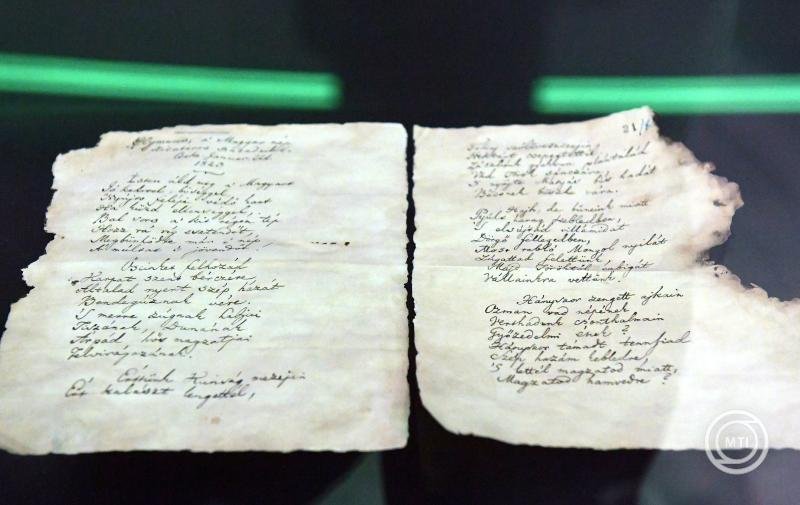 Hymnus, a' Magyar nép
zivataros századaiból.
1823
Isten áldd meg a' Magyart
Jó kedvvel, bőséggel,
Nyújts feléje védő kart
Ha küzd ellenséggel;
Bal sors a' kit régen tép
Hozz rá víg esztendőt,
Megbűnhődte már e' nép
A' múltat 's jövendőt.
Őseinket felhozád
Kárpát szent bérczére,
Általad nyert szép hazát
Bendegúznak vére.
'S merre zúgnak habjai
Tiszának, Dunának
Árpád hős magzatjai
Felvirágozának.
Értünk Kunság mezejin
Ért kalászt lengettél,
21/
Tokaj szőlővesszejin
Nektárt csepegtettél.
Zászlónk gyakran plántálád
Vad Török sánczára,
'S nyögte Mátyás bús hadát
Bécsnek büszke vára.
Hajh, de bűneink miatt
Gyúlt harag kebledben,
'S elsújtád villámidat
Dörgő fellegedben,
Most rabló Mongol nyilát
Zúgattad felettünk,
Majd Töröktől rabigát
Vállainkra vettünk.
Hányszor zengett ajkain
Ozman vad népének
Vert hadunk csonthalmain
Győzedelmi ének?
Hányszor támadt tenn fiad
Szép hazám kebledre,
'S lettél magzatod miatt,
Magzatod hamvvedre?
MTI